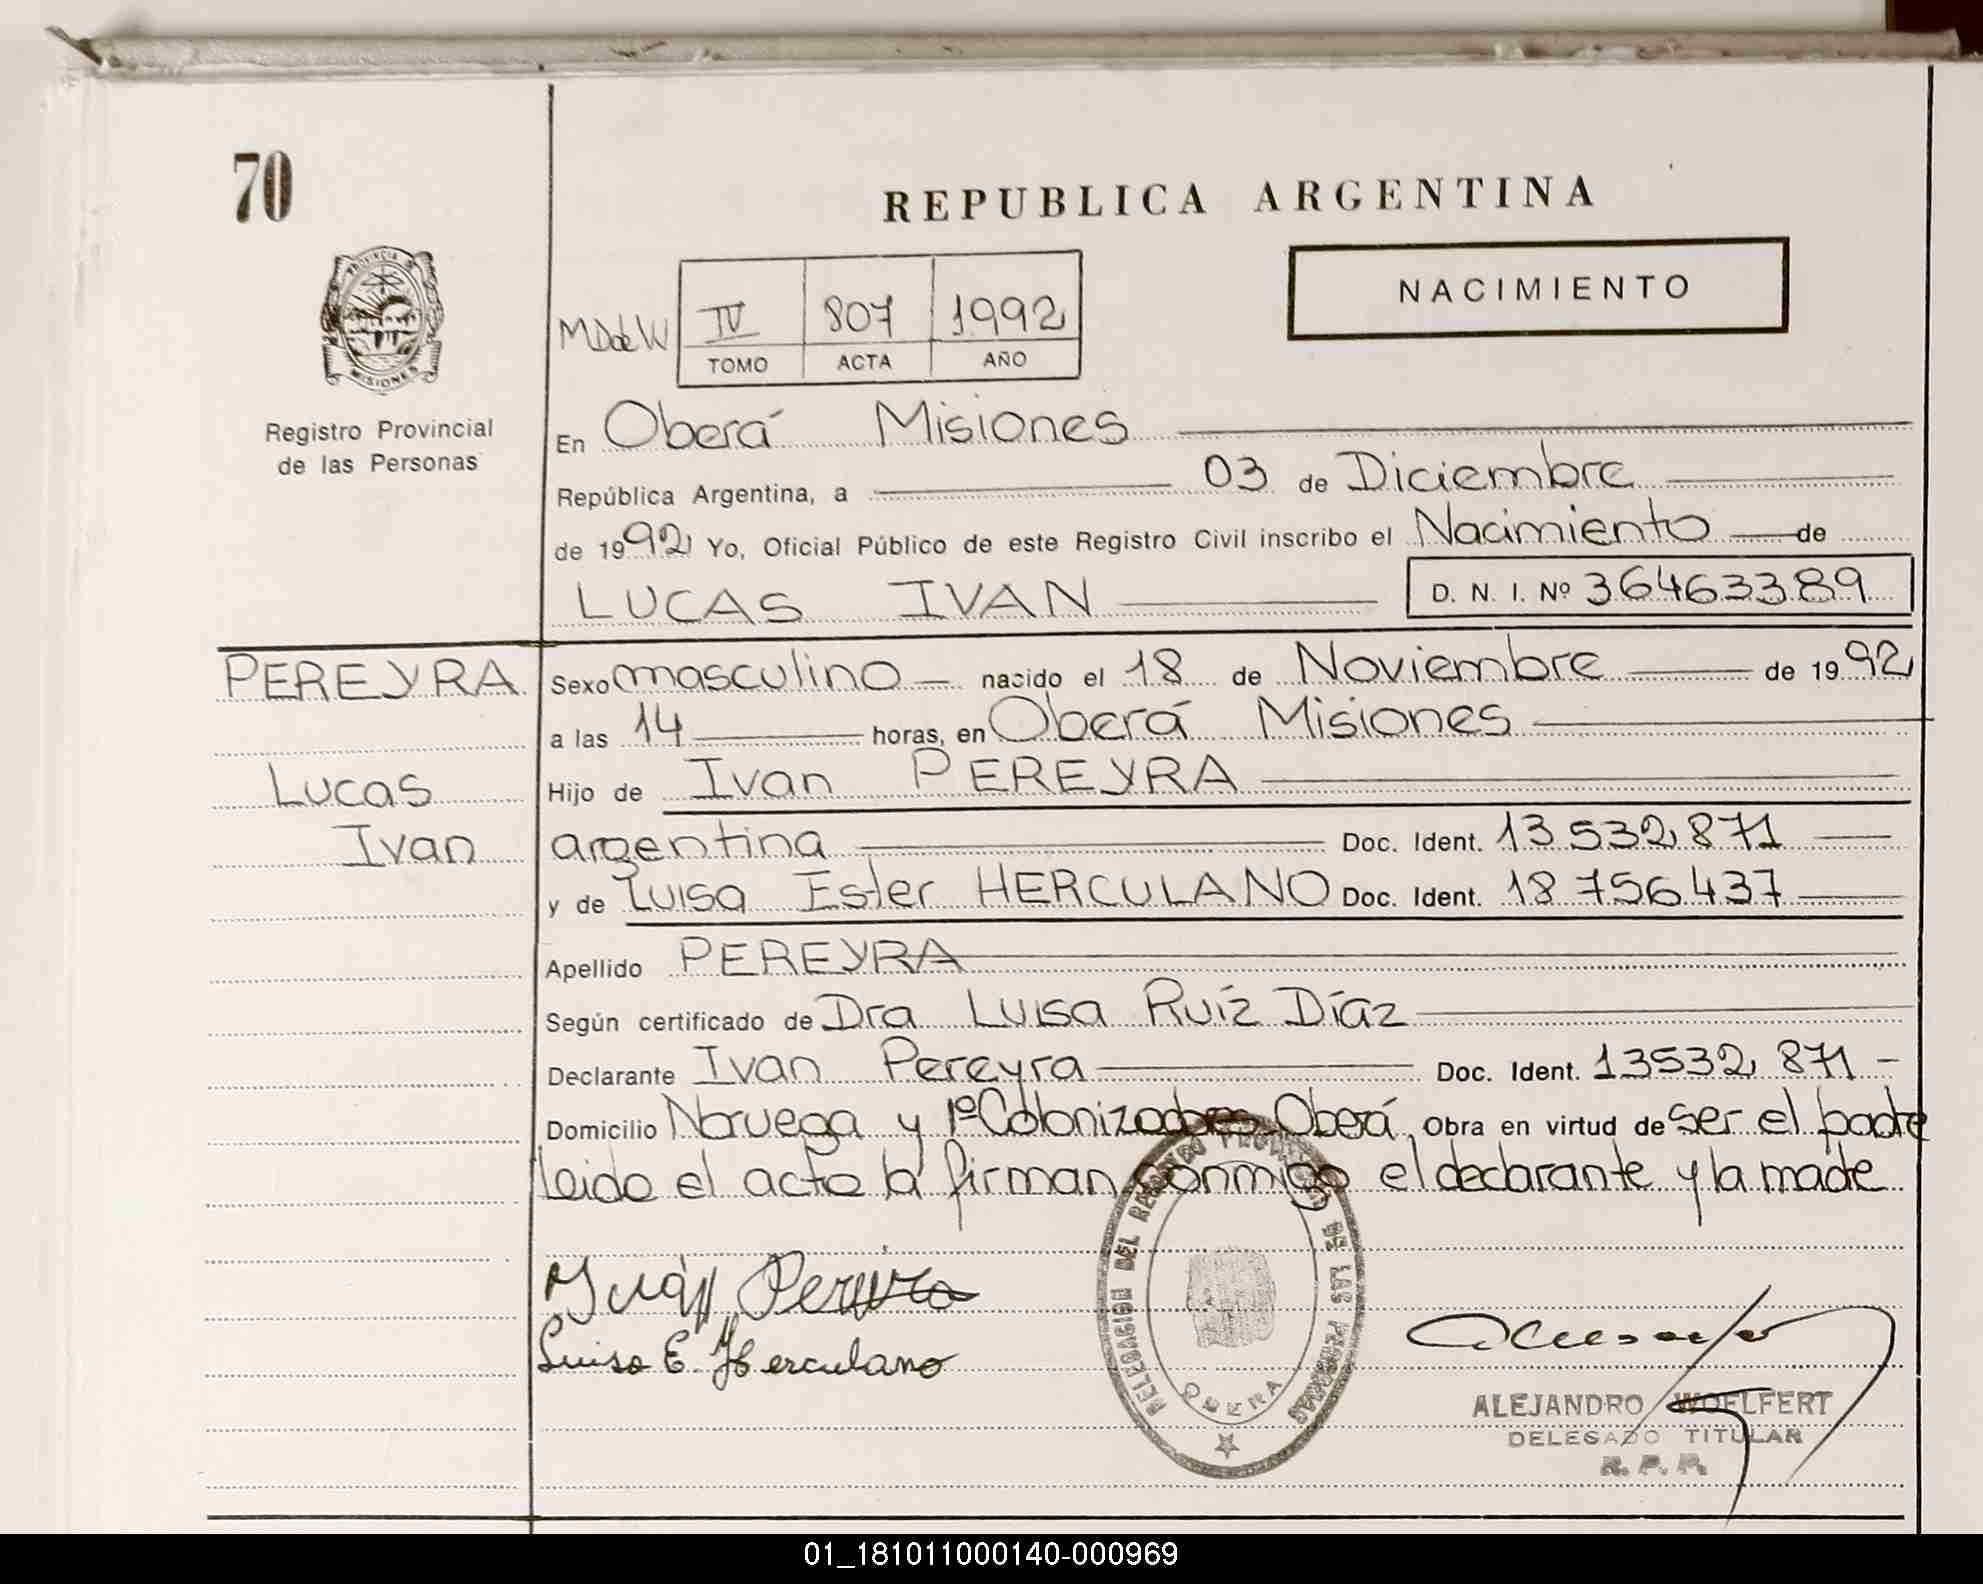 70
REPUBLICA ARGENTINA
PROVINCIA DE
MISIONES
NACIMIENTO
MDdeW IV 807 1992
TOMO ACTA AÑO
Registro Provincial
de las Personas
En Oberá Misiones
República Argentina, a 03 de Diciembre
de 1992 Yo, Oficial Público de este Registro Civil inscribo el Nacimiento de
LUCAS IVAN D. N. I. Nº 36463389
PEREYRA Sexo masculino nacido el 18 de Noviembre de 1992
a las 14 horas, en Oberá Misiones
Lucas Hijo de Ivan PEREYRA
Ivan argentina Doc. Ident. 13 532 871
y de Luisa Ester HERCULANO Doc. Ident. 18 756 437
Apellido PEREYRA
Según certificado de Dra Luisa Ruíz Díaz
Declarante Ivan Pereyra Doc. Ident. 13532 871 -
Domicilio Noruega y 1º Colonizadores Oberá, Obra en virtud de ser el padre
leido el acta la firman conmigo el declarante y la madre
Luisa E. Herculano
DEL DE LAS PERSONAS
ALEJANDRO WOELFERT
DELEGADO TITULAR
R. P. P.
01_181011000140-000969